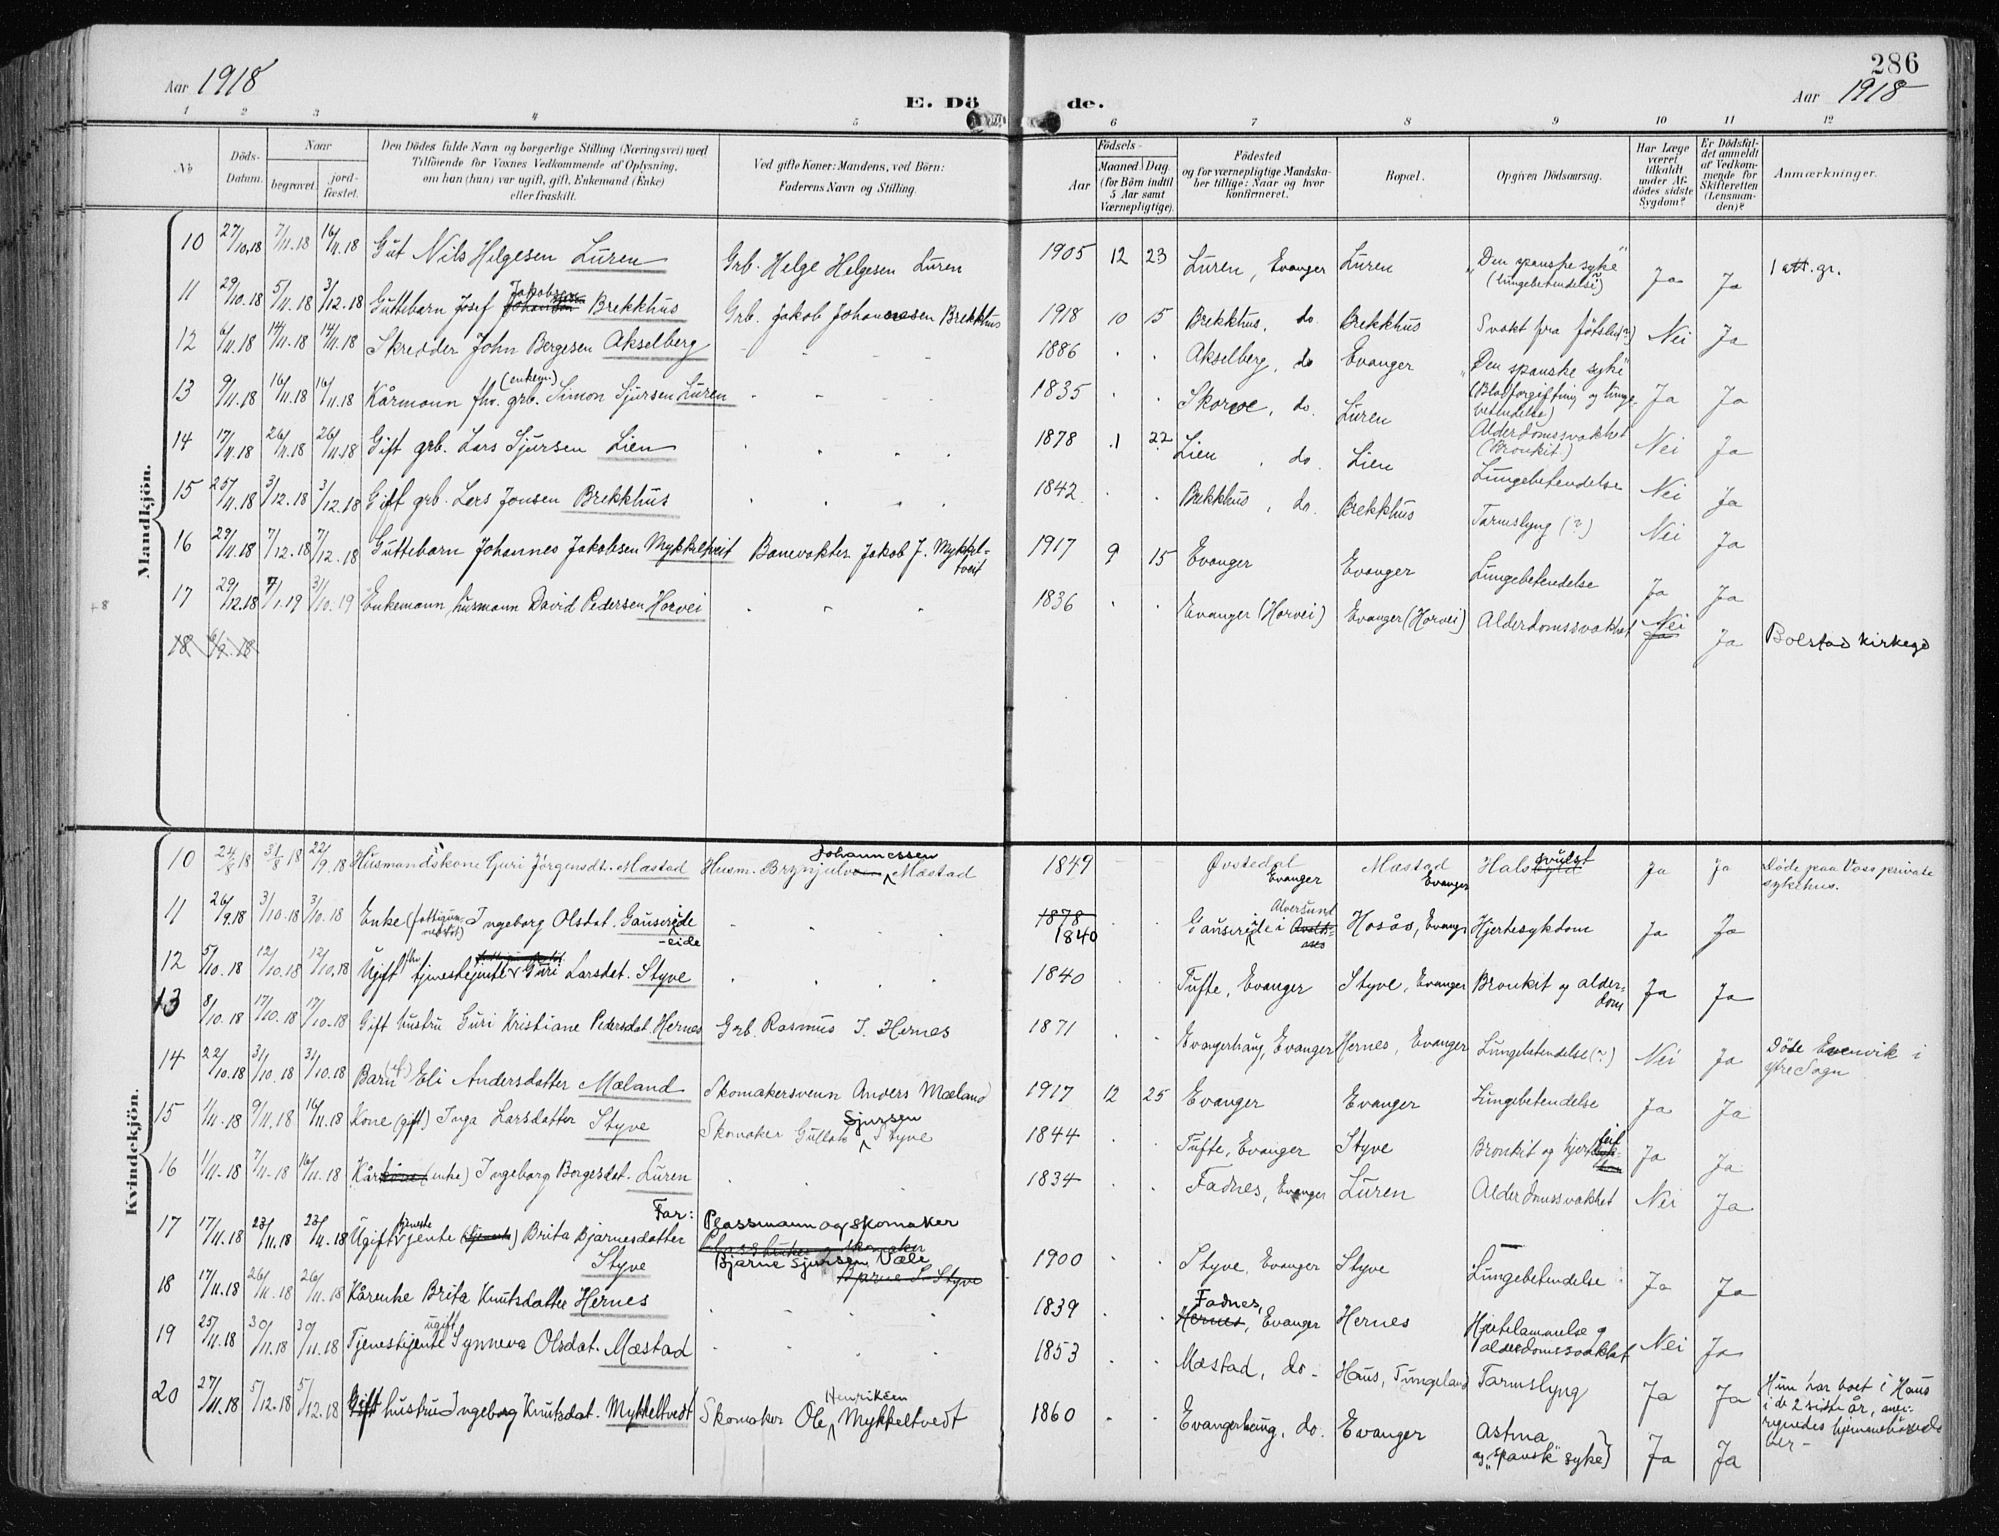 286
Aar 1918
E. Dö de.
Aar 1918
1 2 3 4 5 6 7 8 9 10 11 12
No
Döds-Datum.
Naar
begravet.
jord-fæstet.
Den Dödes fulde Navn og borgerlige Stilling (Næringsvei) med
Tilföiende for Voxnes Vedkommende af Oplysning,
om han (hun) var ugift, gift, Enkemand (Enke)
eller fraskilt.
Ved gifte Koner: Mandens, ved Börn:
Faderens Navn og Stilling.
Födsels-
Aar
Maaned Dag
(for Börn indtil
5 Aar samt
Værnepligtige).
Födested
og for værnepligtige Mandska-
ber tillige: Naar og hvor
konfirmeret.
Bopæl.
Opgiven Dödsaarsag.
Har Læge
været
tilkaldt
under Af-
dödes sidste
Sygdom?
Er Dödsfal-
det anmeldt
af Vedkom-
mende for
Skifteretten
(Lensman-
den)?
Anmærkninger.
Mandkjön.
10 27/10.18 7/11.18 16/11.18 Gut Nils Helgesen Luren Grb. Helge Helgesen Luren 1905 12 23 Luren, Evanger Luren "Den spanske syke" (Lungebetendelse) Ja Ja 1 att. gr.
11 29/10.18 5/11.18 3/12.18 Guttebarn Josef Jakobsen Brekkhus Grb. Jakob Johannesen Brekkhus 1918 10 15 Brekkhus, do Brekkhus Svakt fra fötslen(?) Nei Ja
12 6/11.18 14/11.18 14/11.18 Skredder John Bergesen Akselberg 1886 Akselberg, do Evanger "Den spanske syke" (Blodforgiftning og lungebetendelse) Ja Ja
13 9/11.18 16/11.18 16/11.18 Kårmann fhv. grb. (enkem) Simon Sjursen Luren 1835 Skorve, do. Luren Alderdomssvakhet (Bronkit) Nei Ja
14 17/11.18 26/11.18 26/11.18 Gift grb. Lars Sjursen Lien 1878 1 22 Lien, do. Lien Lungebetendelse Nei Ja
15 25/11.18 3/12.18 3/12.18 Gift grb. Lars Jonsen Brekkhus 1842 Brekkhus, do. Brekkhus Tarmslyng (?) Nei Ja
16 29/11.18 7/12.18 7/12.18 Guttebarn Johannes Jakobsen Mykkeltveit Banevakter Jakob J. Mykkeltveit 1917 9 15 Evanger Evanger Lungebetendelse Ja Ja
17 29/12.18 7/1.19 31/10.19 Enkemann, husmann David Pedersen Horvei 1836 Evanger (Horvei) Evanger (Horvei) Alderdomssvakhet Nei Ja Ja Bolstad kirkegd
+8
18 6/9.18
Kvindekjön.
10 24/8 18 31/8 18 22/9.18 Husmandskone Guri Jörgensdt. Mæstad Husm. Brynjulv Johannessen Mæstad 1849 Øvstedal Evanger Mæstad Evanger Halssvulst Ja Ja Døde paa Voss private sykehus.
11 26/9.18 3/10.18 3/10.18 Enke Ingeborg Olsdat. Gausereide -eide 1878 1840 Gausereide i Alversund Hosås, Evang. Hjertesykdom Ja Ja
12 5/10.18 12/10.18 12/10.18 Ugift fhv tjenestejente Guri Larsdat. Styve 1840 Tufte, Evanger Styve, Evanger Bronkit og alderdom Ja Ja
13 8/10.18 17/10.18 17/10.18 Gift hustru Guri Kristiane Pedersdat. Hernes Grb. Rasmus I. Hernes 1871 Evangerhaug, Evanger Hernes, Evanger Lungebetendelse(?) Nei Ja Døde Evenvik i ytre Sogn
14 22/10.18 31/10.18 31/10.18 Barn Eli Andersdatter Mæland Skomakersvenn Anders Mæland 1917 12 25 Evanger Evanger Lungebetendelse Ja Ja
15 1/11.18 9/11.18 16/11.18 Kone (gift) Inga Larsdatter Styve Skomaker Gullak Sjursen Styve 1844 Tufte, Evanger Styve Bronkit og hjertefeil Ja Ja
16 1/11.18 7/11.18 16/11.18 Kårkone (enke) Ingeborg Borgesdat. Luren 1834 Fadnes, Evanger Luren Alderdomssvakhet Nei Ja
17 17/11.18 23/11.18 23/11.18 Ugift tjenestejente (tjente) Brita Bjarnesdatter Styve Far: Plassmann og skomaker Bjarne Sjursen Væle Bjarne S. Styve 1900 Styve, Evanger Styve Lungebetendelse Ja Ja
18 17/11.18 26/11.18 26/11.18 Kårenke Brita Knutsdatter Hernes 1839 Fadnes, Hernes, Evanger Hernes Hjertelammelse og alderdomssvakhet Nei Ja
19 25/11.18 30/11.18 30/11.18 Tjenestejente ugift Synneva Olsdat. Mæstad 1853 Mæstad, do- Haus, Tungeland Tarmslyng Ja Ja Hun har boet i Haus i de 2 siste år, men regnedes hjemmehörende her -
20 27/11.18 5/12.18 5/12.18 Gift hustru Ingeborg Knutsdat. Mykkeltvedt Skomaker Ole Henriksen Mykkeltvedt 1860 Evangerhaug, do. Evanger Astma og "spansk" syke) Ja Ja